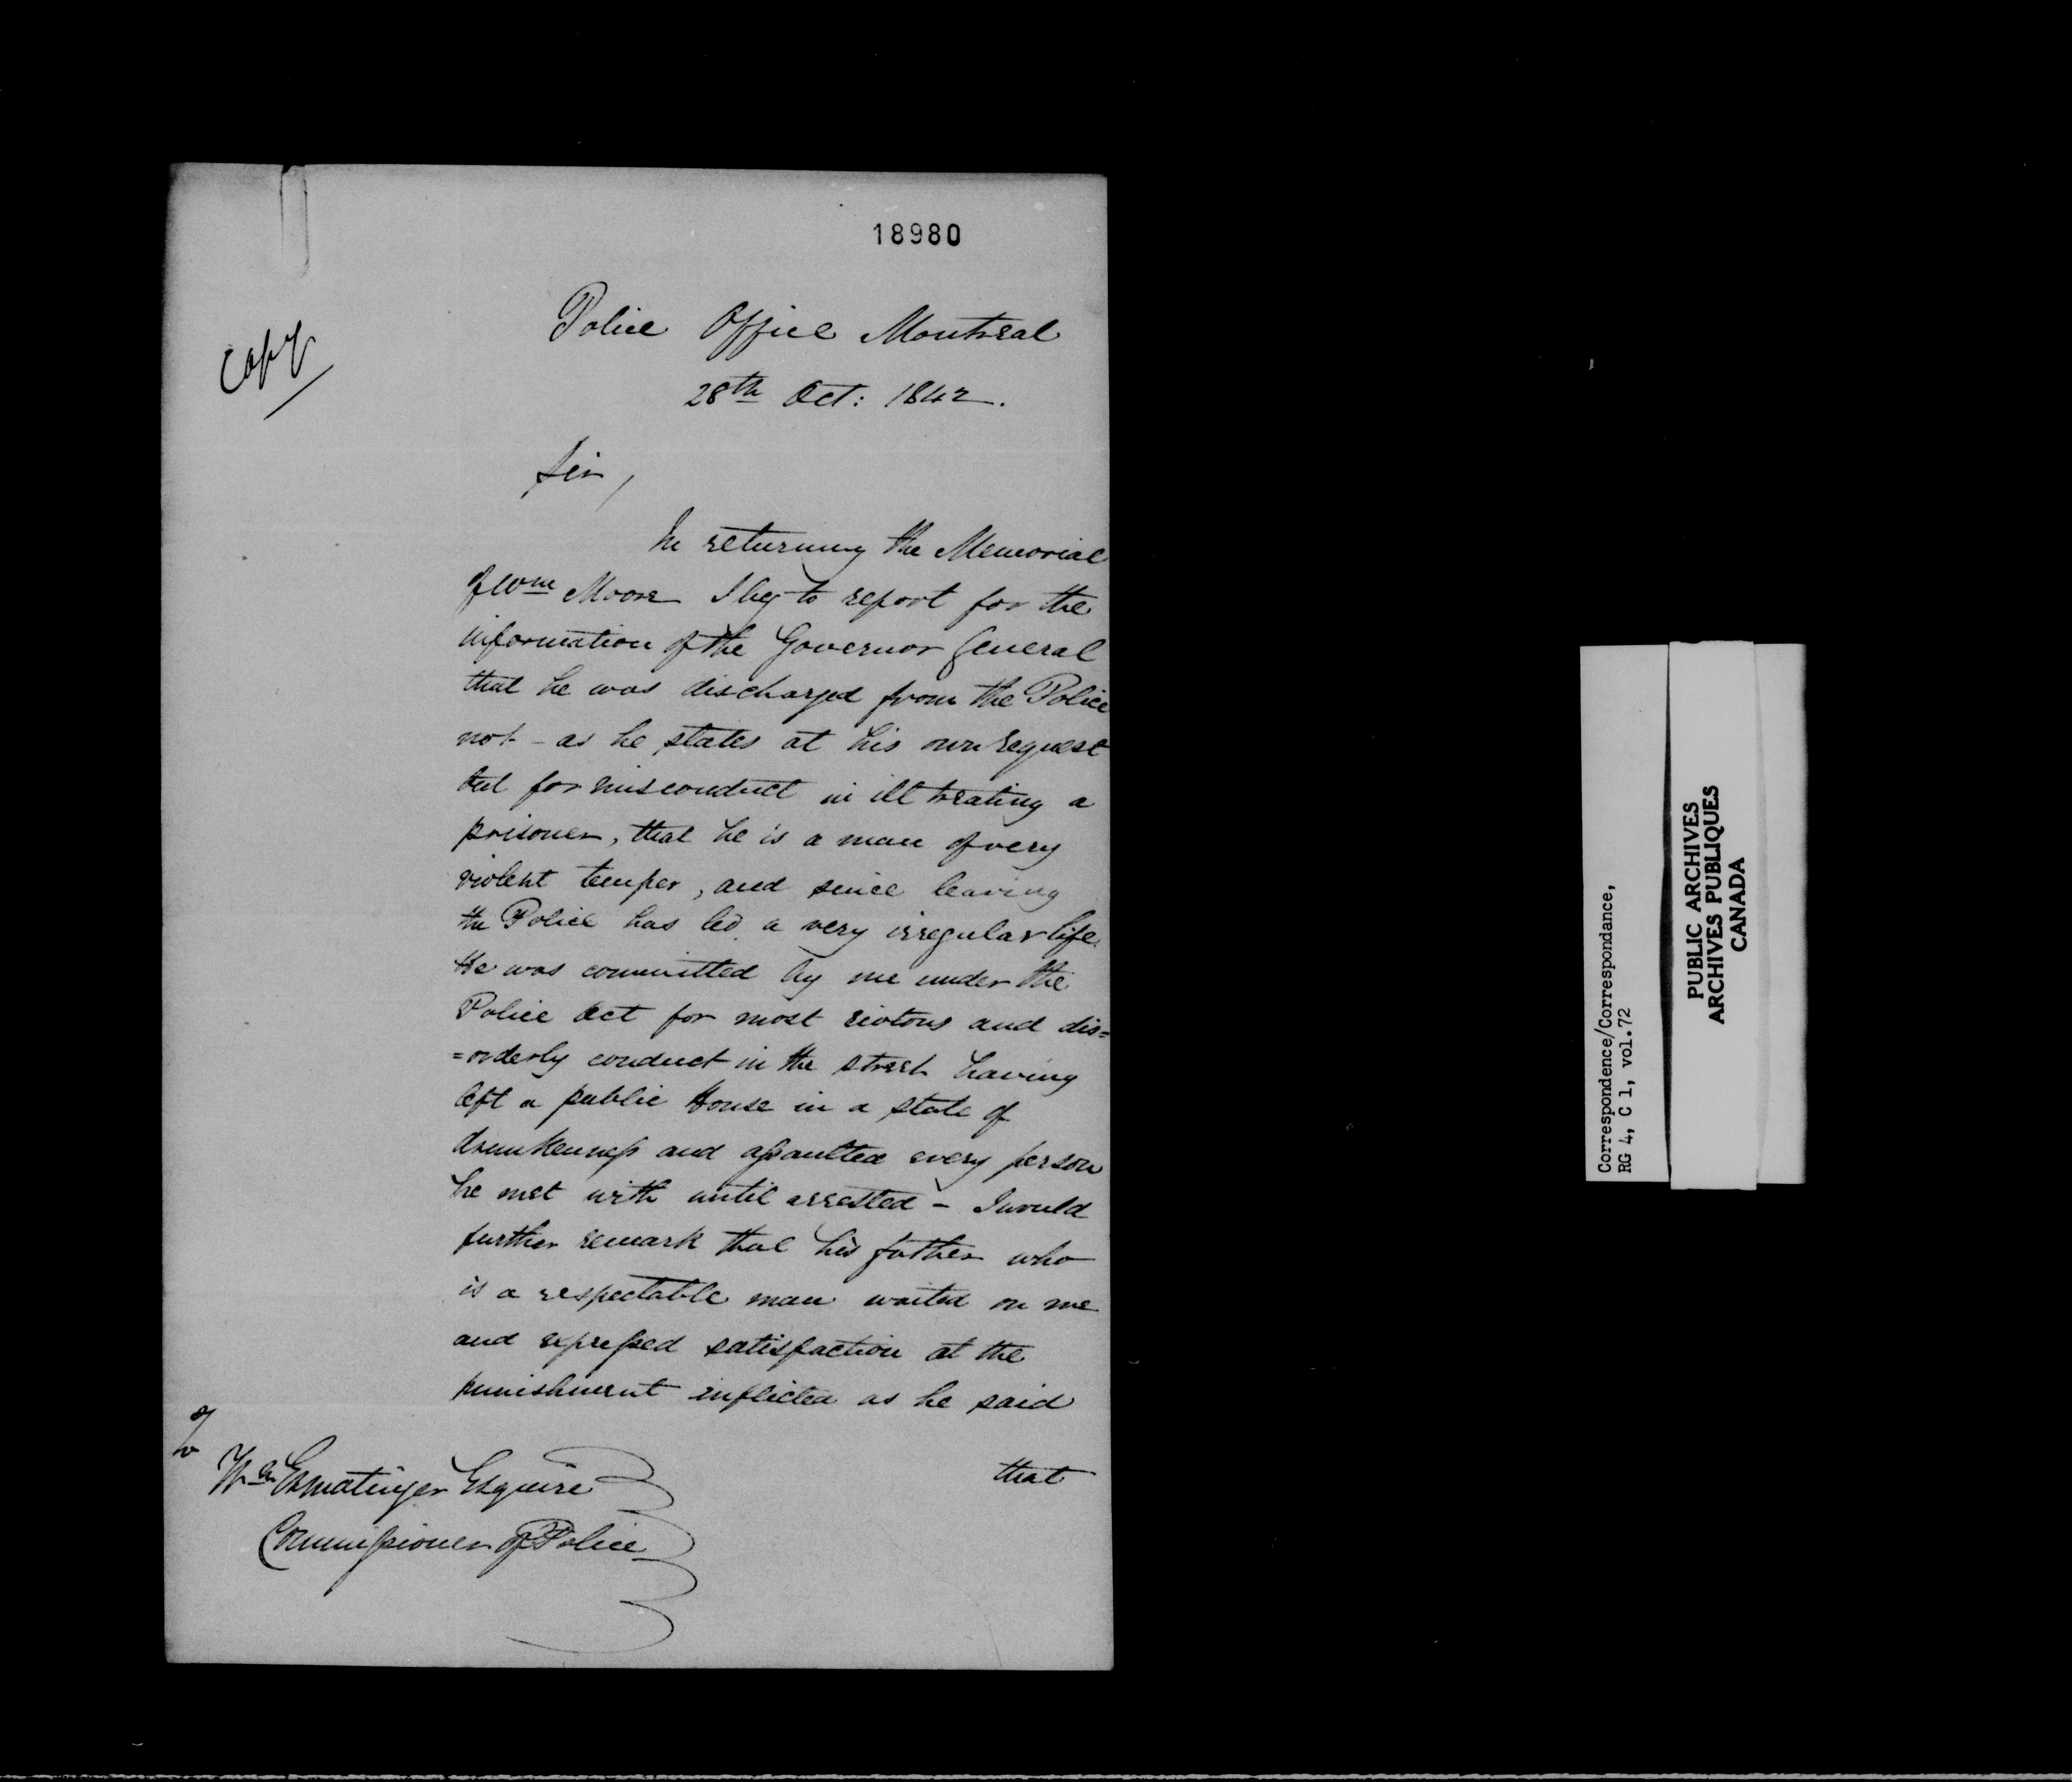 18980
Copy
Police Office Montreal
28th Oct: 1842.
Sir,
In returning the Memorial
of Wm Moore I beg to report for the
information of the Governor General
that he was discharged from the Police
not - as he states at his own request
but for misconduct in ill treating a
prisoner, that he is a man of very
violent temper, and since leaving
the Police has led a very irregular life.
He was committed by me under the
Police Act for most riotous and dis=
=orderly conduct in the street having
left a public House in a state of
drunkenness and assaulted every person
he met with until arrested - I would
further remark that his father who
is a respectable man waited on me
and expressed satisfaction at the
punishment inflicted as he said
that
Wm Ermatinger Esquire
Commissioner of Police
Correspondence/Correspondance,
RG 4, C 1, vol.72
PUBLIC ARCHIVES
ARCHIVES PUBLIQUES
CANADA